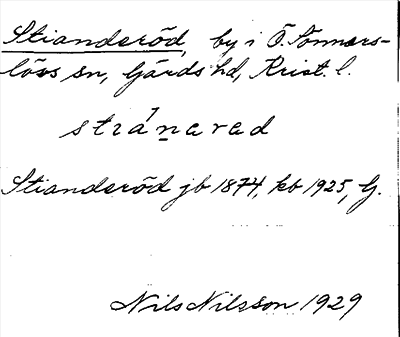 Stianderöd, by i Ö. Sönnars-
löss sn, Gärds hd, Krist. l.
stiánarad
Stianderöd jb 1874, kb 1925, G.
Nils Nilsson 1929